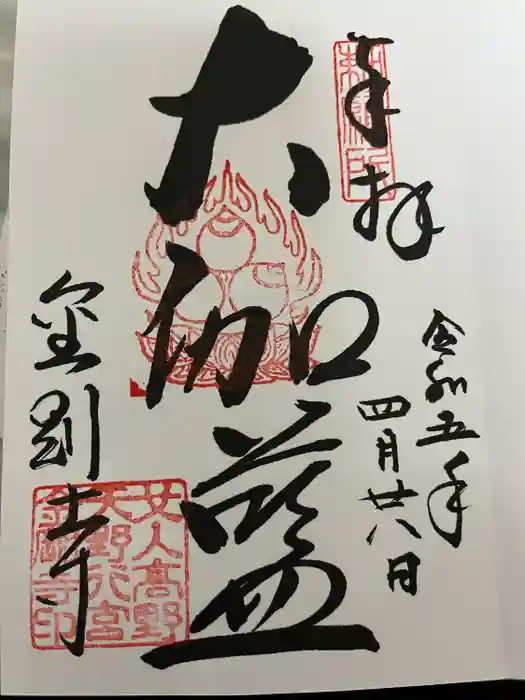 奉拝
令和五年
四月廿八日
大伽藍
金剛寺
女人高野
天野行宮
金剛寺印